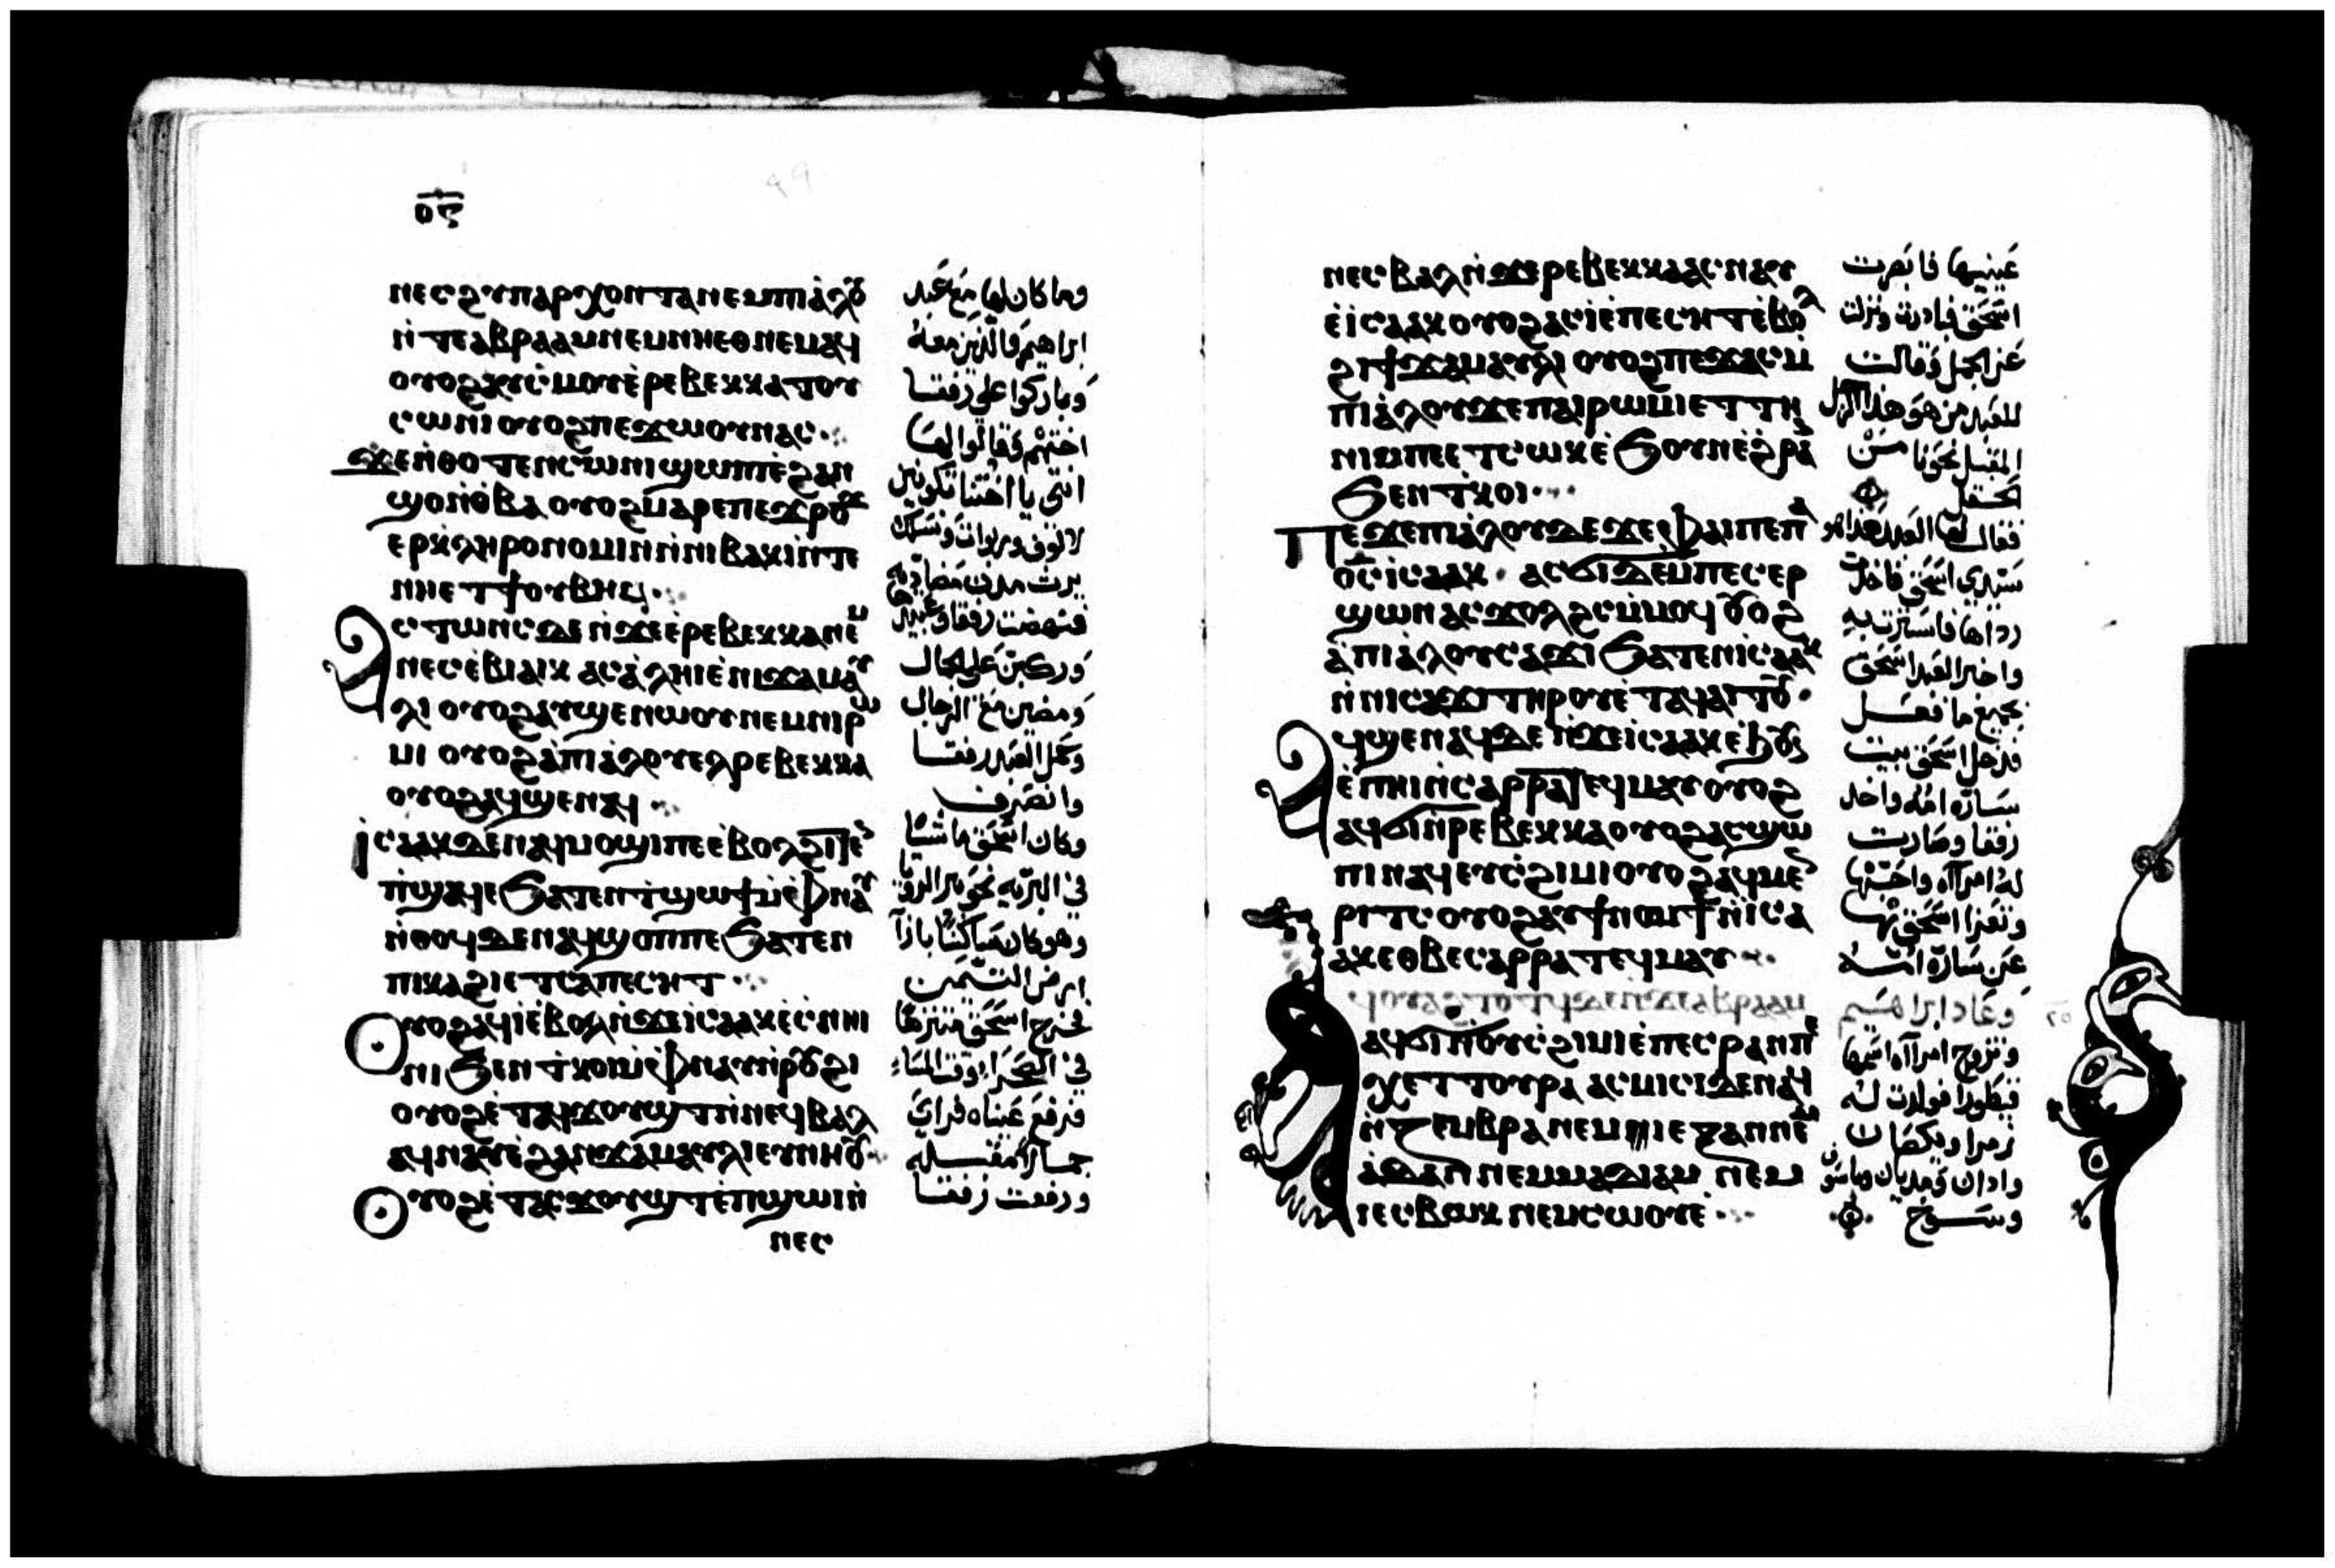 ⲟⲋ
ⲛⲉⲥϩⲩⲡⲁⲣⲭⲟⲛⲧⲁⲛⲉⲙⲡⲓⲁ̀ⲗⲟⲩ
ⲛ̀ⲧⲉⲁⲃⲣⲁⲁⲙⲛⲉⲙⲛⲏⲉⲑⲛⲉⲙⲁϥ
ⲟⲩⲟϩⲁⲩⲥ̀ⲙⲟⲩⲉ̀ⲣⲉⲃⲉⲕⲕⲁⲧⲟⲩ
ⲥⲱⲛⲓⲟⲩⲟϩⲡⲉϫⲱⲟⲩⲛⲁⲥ
ϫⲉⲛ̀ⲑⲟⲧⲉⲛⲥⲱⲛⲓϣⲱⲡⲓⲉ̀ϩⲁⲛ
ϣⲟⲛ̀ⲑ̀ⲃⲁⲟⲩⲟϩⲙⲁⲣⲉⲡⲉϫⲣⲟϫ
ⲉⲣⲕ̀ⲗⲏⲣⲟⲛⲟⲙⲓⲛⲛ̀ⲛⲓⲃⲁⲕⲓⲛ̀ⲧⲉ
ⲛⲏⲉⲧϯⲟⲩⲃⲏϥ
ⲁⲥⲧⲱⲛⲥⲇⲉⲛ̀ϫⲉⲉ̀ⲣⲉⲃⲉⲕⲕⲁⲛⲉⲙ
ⲛⲉⲥⲉ̀ⲃⲓⲁⲓⲕ ⲁⲥⲁ̀ⲗⲏⲓⲉ̀ⲛⲓϫⲁⲙⲁⲩ
ⲗⲓ ⲟⲩⲟϩⲁⲩϣⲉⲛⲱⲟⲩⲛⲉⲙⲛⲓⲣⲱ
ⲙⲓ ⲟⲩⲟϩⲁ̀ⲡⲓⲁ̀ⲗⲟⲩⲉⲗⲣⲉⲃⲉⲕⲕⲁ
ⲟⲩⲟϩⲁϥϣⲉⲛⲁϥ
ⲓⲥⲁⲁⲕⲇⲉⲛⲁϥⲙⲟϣⲓⲡⲉⲉ̀ⲃⲟⲗϩⲓⲧⲉⲛ
ⲡ̀ϣⲁϥⲉϧⲁⲧⲉⲛϯϣⲱϯⲙ̀ⲫⲛⲁⲩ
ⲛ̀ⲑⲟϥⲇⲉⲛⲁϥϣⲟⲡⲡⲉϧⲁⲧⲉⲛ
ⲡⲓⲕⲁϩⲓⲉⲧⲥⲁⲡⲉⲥⲏⲧ
ⲟⲩⲟϩⲁϥⲓⲉ̀ⲃⲟⲗⲛ̀ϫⲉⲓⲥⲁⲁⲕⲉ̀ⲥⲛⲏⲓ
ⲛⲓϧⲉⲛⲧ̀ⲕⲟⲓⲙ̀ⲫⲛⲁⲩⲛ̀ⲣⲟⲩϩⲓ
ⲟⲩⲟϩⲉ̀ⲧⲁϥϫⲟⲩϣⲧⲛ̀ⲛⲉϥⲃⲁⲗ
ⲁϥⲛⲁⲩⲉ̀ϩⲁⲛϫⲁⲙⲁⲩⲗⲓⲉⲩⲛⲏⲟⲩ
ⲟⲩⲟϩⲉ̀ⲧⲁⲥϫⲟⲩϣⲧⲉ̀ⲡϣⲱⲓⲛ̀
ⲛⲉⲥ
وما كان لها مع عبد
ابراهيم والذين معه
وباركوا على رفقا
اختهم وقالوا لها
انتي يا اختنا تكونين
لالوف وربوات ونسلك
يرث مدن مضاديه
فنهضت رفقا وعبيدها
وركبن على الجمال
ومضين مع الرجال
وحمل العبد رفقا
وانصرف
وكان اسحق ماشيا
في البريه نحو بير الرويا
وهو كان ساكنا بازآ
ارض التيمن
فخرج اسحق متنزها
في الصحرا وقت المساء
فرفع عيناه فراي
جمالا مقبله
ورفعت رفقا
ⲛⲉⲥⲃⲁⲗⲛ̀ϫⲉⲣⲉⲃⲉⲕⲕⲁⲁⲥⲛⲁⲩ
ⲉ̀ⲓⲥⲁⲁⲕⲟⲩⲟϩⲁⲥⲓⲉ̀ⲡⲉⲥⲏⲧⲉ̀ⲃⲟⲗ
ϩⲓϯϫⲁⲙⲁⲩⲗⲓ ⲟⲩⲟϩⲡⲉϫⲁⲥⲙ̀
ⲡⲓⲁ̀ⲗⲟⲩϫⲉⲡⲁⲓⲣⲱⲙⲓⲉⲧⲧⲏ
ⲛⲓⲙⲡⲉⲉⲧⲥⲱⲕⲉ̀ϧⲟⲩⲛⲉ̀ϩⲣⲁⲛ
ϧⲉⲛⲧ̀ⲕⲟⲓ
ⲡⲉϫⲉⲡⲓⲁ̀ⲗⲟⲩⲇⲉϫⲉⲫⲁⲓⲡⲉⲡⲁ
ⲟ̅ⲥ̅ⲓⲥⲁⲁⲕ ⲁⲥϭⲓⲇⲉⲙ̀ⲡⲉⲥⲉⲣ
ϣⲱⲛⲁⲥϫⲟⲗϩⲥⲙ̀ⲙⲟϥⲟⲩⲟϩ
ⲁ̀ⲡⲓⲁ̀ⲗⲟⲩⲥⲁϫⲓϧⲁⲧⲉⲛⲓⲥⲁⲁⲕ
ⲛ̀ⲛⲓⲥⲁϫⲓⲧⲏⲣⲟⲩⲉ̀ⲧⲁϥⲁⲓⲧⲟⲩ
ⲁϥϣⲉⲛⲁϥⲇⲉⲛ̀ϫⲉⲓⲥⲁⲁⲕⲉ̀ϧⲟⲩⲛ
ⲉ̀ⲡⲏⲓⲛ̀ⲥⲁⲣⲣⲁⲧⲉϥⲙⲁⲩⲟⲩⲟϩ
ⲁϥϭⲓⲛ̀ⲣⲉⲃⲉⲕⲕⲁⲟⲩⲟϩⲁⲥϣⲱ
ⲡⲓⲛⲁϥⲉⲩⲥ̀ϩⲓⲙⲓⲟⲩⲟϩⲁϥⲙⲉⲛ
ⲣⲓⲧⲥⲟⲩⲟϩⲁⲩϯⲛⲟⲙϯⲛ̀ⲓⲥⲁ
ⲁⲕⲉⲑⲃⲉⲥⲁⲣⲣⲁⲧⲉϥⲙⲁⲩ
ⲁϥϭⲓⲛ̀ⲟⲩⲥ̀ϩⲓⲙⲓⲉ̀ⲡⲉⲥⲣⲁⲛⲡⲉ
ⲭⲉⲧⲧⲟⲩⲣⲁ ⲁⲥⲙⲓⲥⲓⲇⲉⲛⲁϥ
ⲛ̀ⲍⲉⲙⲃⲣⲁⲛⲉⲙⲓⲉⲍⲁⲛⲛⲉⲙ
ⲁⲇⲁⲛ ⲛⲉⲙⲙⲁⲇⲓⲁⲙ ⲛⲉⲙ
ⲓⲉⲥⲃⲱⲕ ⲛⲉⲙⲥⲱⲟⲩⲉ
عينيها فابصرت
اسحق فبادرت ونزلت
عن الجمل وقالت
للعبد من هو هذا الرجل
المقبل نحونا من
الحقل
فقال لها العبد هذا هو
سيدي اسحق فاخذت
رداها فاستترت به
واخبر العبد اسحق
بجميع ما فعل
فدخل اسحق بيت
ساره امه واخذ
رفقا وصارت
له امرآه واحبها
وتعزا اسحق بها
عن ساره امه
وعاد ابراهيم
وتزوج امرآه اسمها
قيطورا فولدت له
زمرا ويكصان
وادان ومديان وماسوق
وسوح